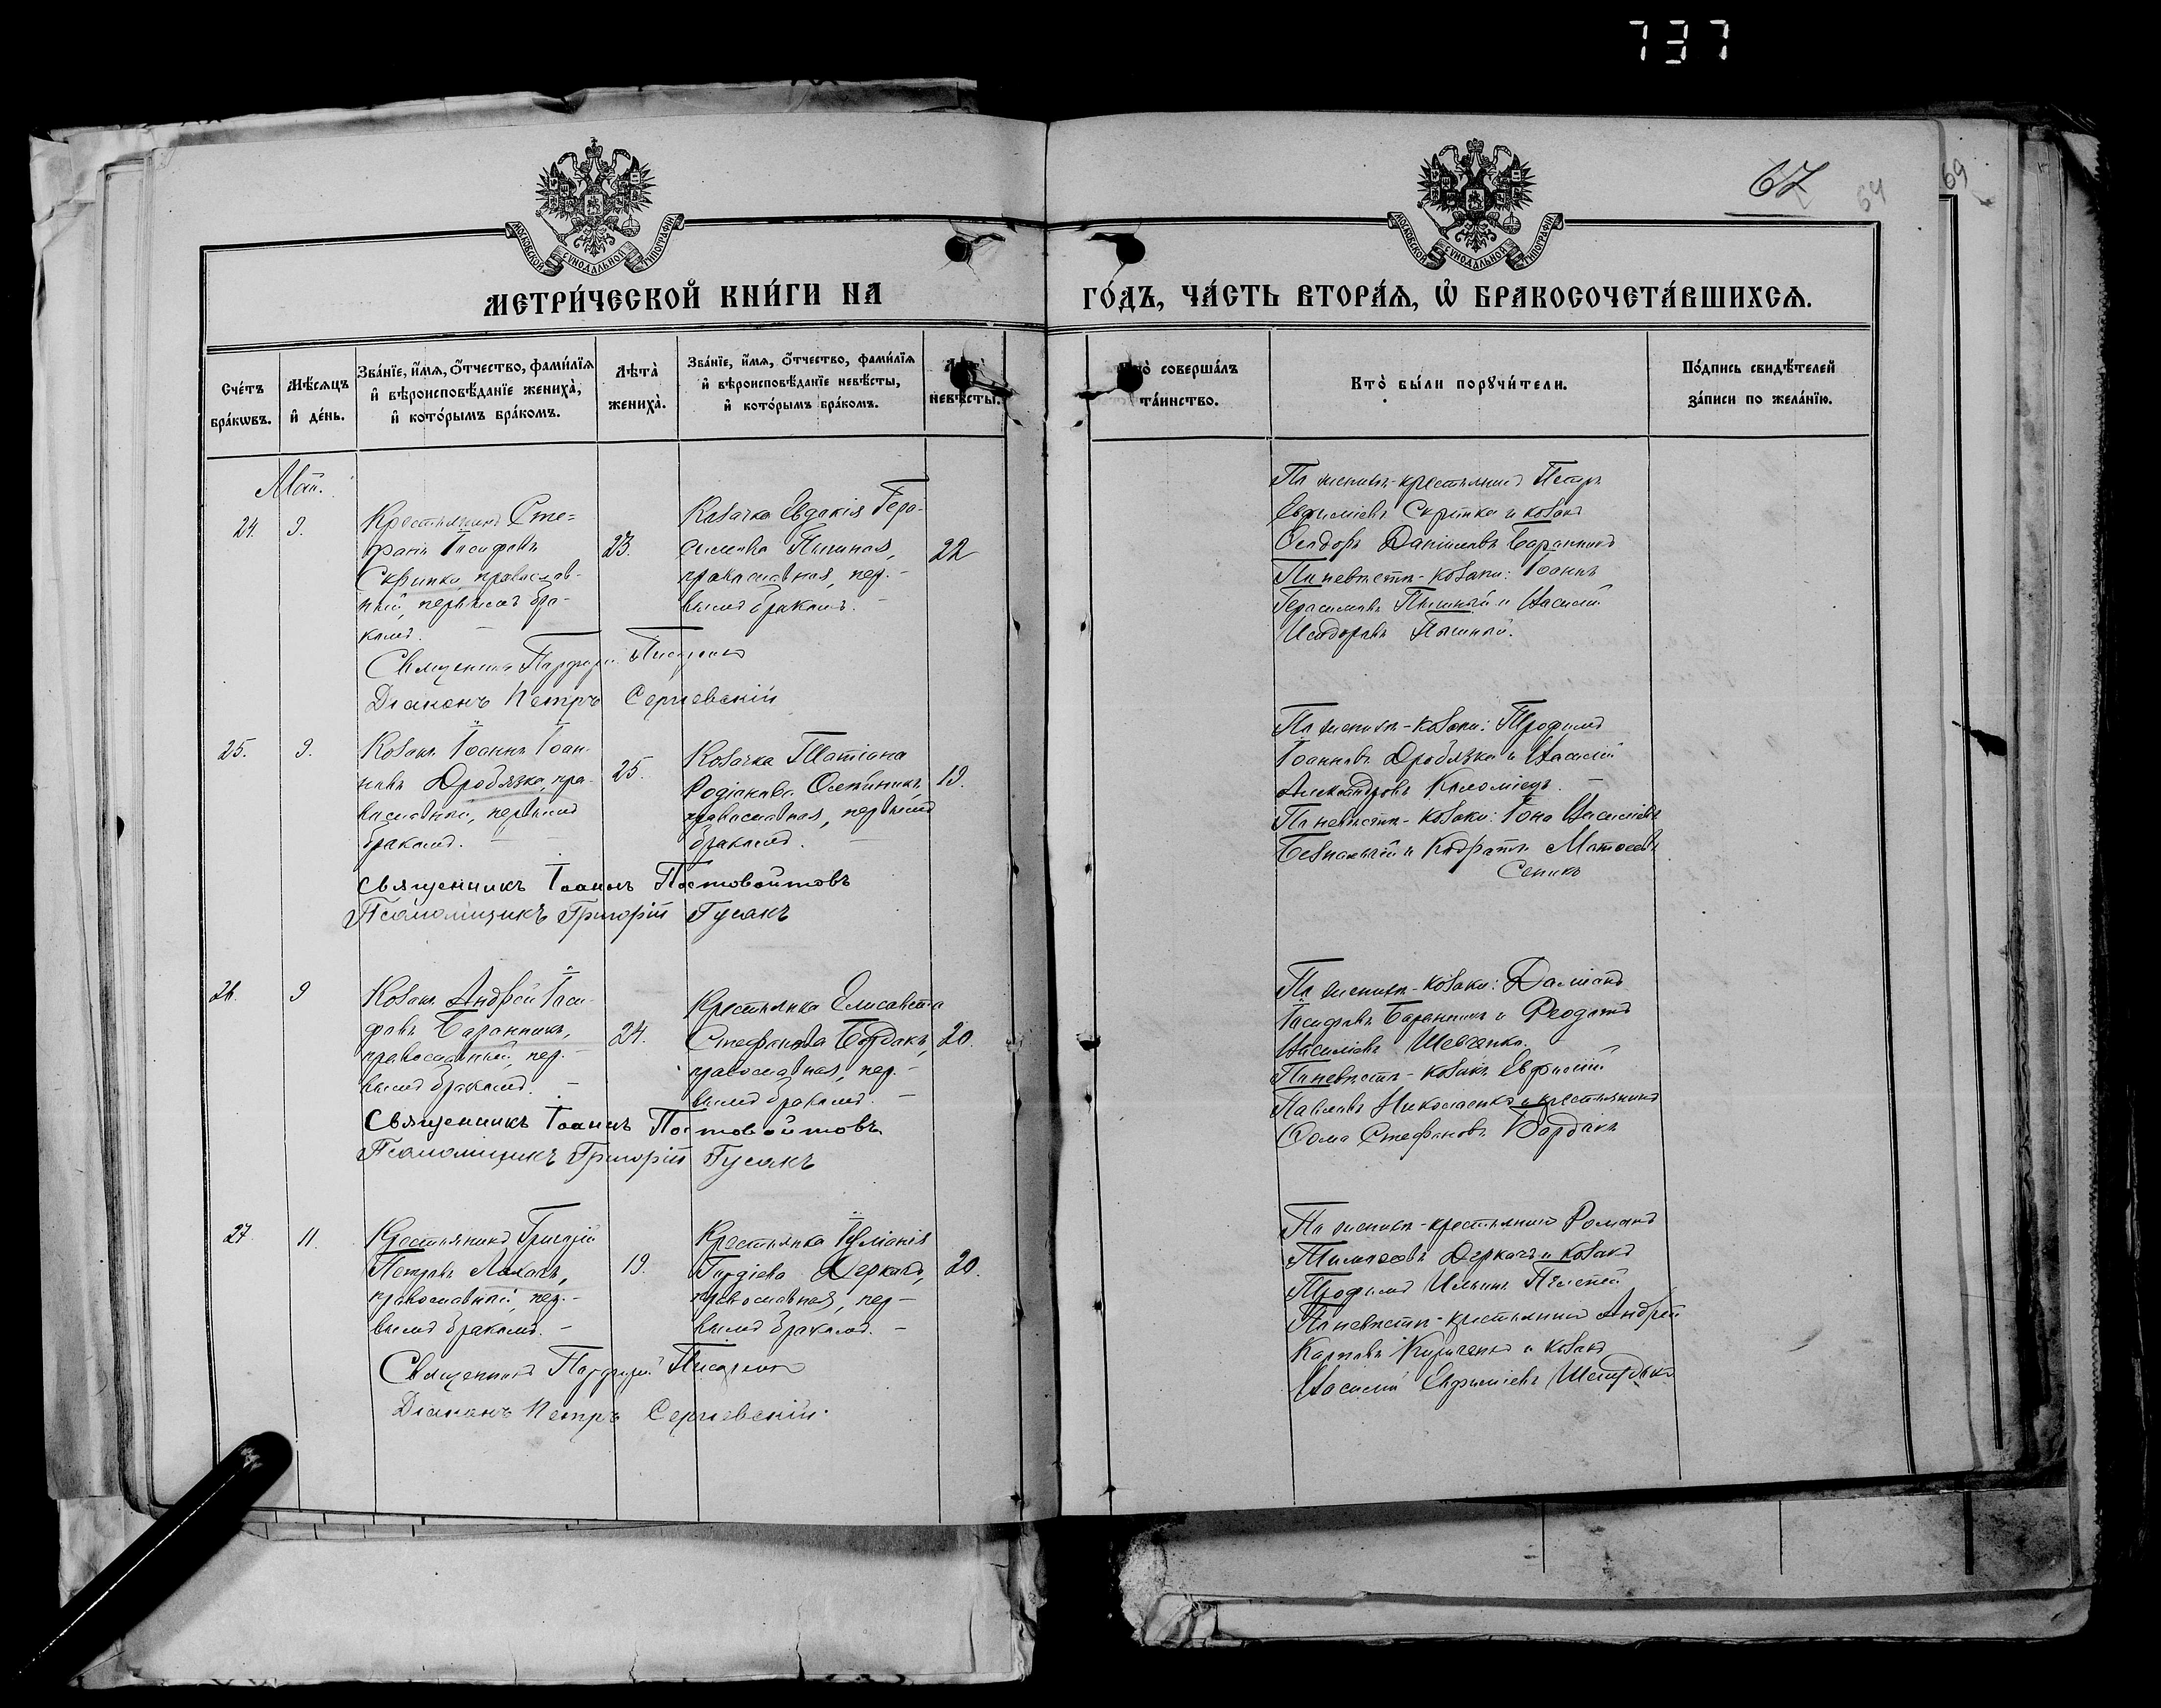 737
67
64
69
МОСКОВСКОЙ СѴНОДАЛЬНОЙ ТИПОГРАФІИ
МОСКОВСКОЙ СѴНОДАЛЬНОЙ ТИПОГРАФІИ
МЕТРИ́ЧЕСКОЙ КНИ́ГИ НА
ГО́ДЪ, ЧА́СТЬ ВТОРА́Ѧ, Ѡ҆ БРАКОСОЧЕТА́ВШИХСѦ.
Сче́тъ
бра́кѡвъ.
Мѣ́сѧцъ
и҆ де́нь.
Зва́нїе, и҆́мѧ, ѻ҆́тчество, фами́лїѧ
и҆ вѣроисповѣ́данїе жениха̀,
и҆ кото́рымъ бра́комъ.
Лѣта̀
жениха̀.
Зва́нїе, и҆́мѧ, ѻ҆́тчество, фами́лїѧ
и҆ вѣроисповѣ́данїе невѣ́сты,
и҆ кото́рымъ бра́комъ.
невѣ́сты.
соверша́лъ
та́инство.
Кто̀ бы́ли порꙋчи́тели.
По́дпись свидѣ́телей
за́писи по жела́нїю.
Май.
24.
9.
Крестьянинъ Сте=
фанъ Іосифовъ
Скрипка, православ-
ный, первымъ бра-
комъ.
23.
Козачка Евдокія Гера-
симова Пышная,
православная, пер-
вымъ бракомъ.
22
Священникъ Парфирій
Діаконъ Петръ Сергіевскій
По женихѣ-крестьянинъ Петръ
Евфиміевъ Скрипка и козакъ
Даніиловъ Баранникъ
По невѣстѣ-козаки: Іоаннъ
Герасимовъ Пышный и Василій
Исидоровъ Пышный.
25.
9.
Козакъ Іоаннъ Іоан-
новъ Дробязко, пра-
вославный, первымъ
бракомъ.
25.
Козачка Татіана
Родіонова
православная, первымъ
бракомъ.
19.
Священникъ Іоаннъ Постовойтовъ
Псаломщикъ Григорій Гусакъ
По женихѣ-козаки: Трофимъ
Іоанновъ Дробязко и Василій
Александровъ Коломіецъ.
По невѣстѣ-козаки: Іона Васильевъ
и Кодратъ Матѳеевъ
Сеникъ
26.
9
Козакъ Андрей Іоси-
фовъ Баранникъ,
православный, пер-
вымъ бракомъ.
24.
Крестьянка Елисавета
Стефанова Бардакъ,
православная, пер-
вымъ бракомъ.
20.
Священникъ Іоаннъ Постовойтовъ
Псаломщикъ Григорій Гусакъ
По женихѣ-козаки: Даміанъ
Іосифовъ Баранникъ и Ѳеодотъ
Васильевъ Шевченко.
По невѣстѣ-козакъ Евфимій
Павловъ Николаенко и крестьянинъ
Ѳома Стефановъ Бардакъ
27.
11.
Крестьянинъ Григорій
Петровъ
православный, пер-
вымъ бракомъ.
19.
Крестьянка Іуліанія
Гордіева Деркачъ,
православная, пер-
вымъ бракомъ.
20.
Священникъ Парфирій
Діаконъ Петръ Сергіевскій.
По женихѣ-крестьянинъ Романъ
Тимоѳеевъ Деркачъ и козакъ
Трофимъ Ильинъ
По невѣстѣ-крестьянинъ Андрей
Карповъ Кириченко и козакъ
Василій Евфиміевъ